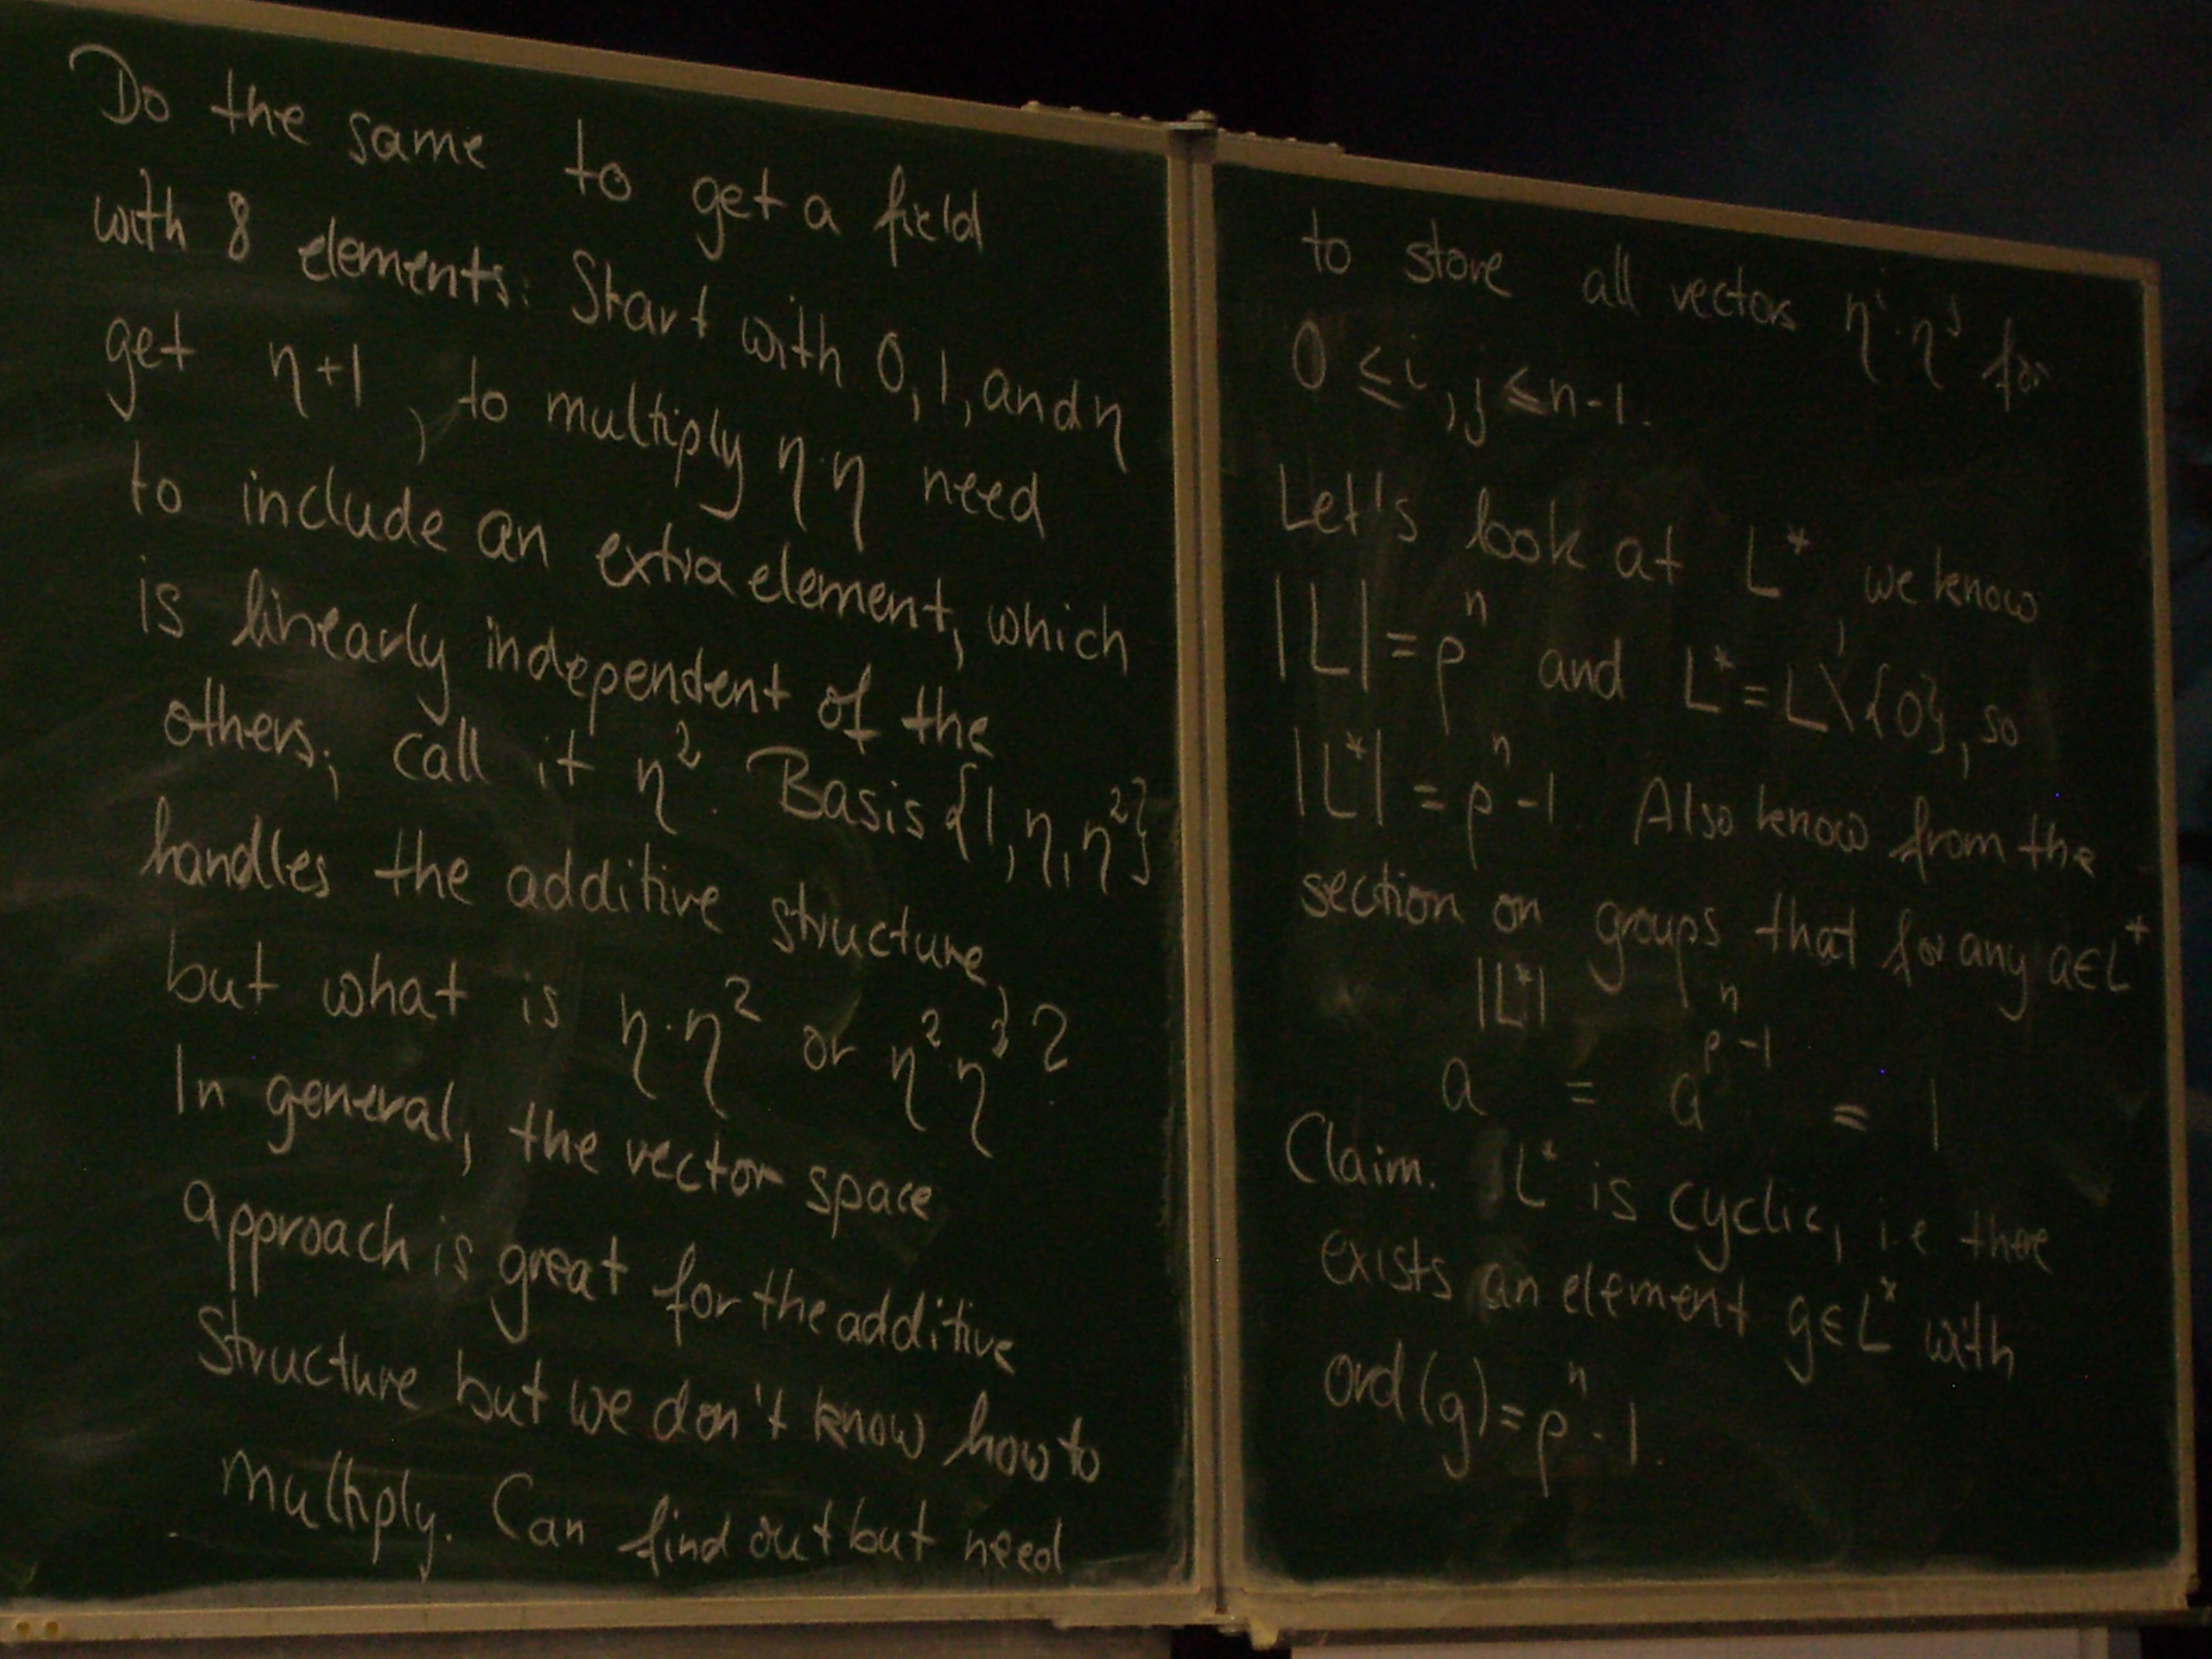 Do the same to get a field
with 8 elements: Start with 0, 1, and η
get η+1, to multiply η·η need
to include an extra element, which
is linearly independent of the
others; call it η². Basis {1, η, η²}
handles the additive structure,
but what is η·η² or η²·η²?
In general, the vector space
approach is great for the additive
Structure but we don't know how to
multiply. Can find out but need
to store all vectors ηⁱ·ηʲ for
0 ≤ i, j ≤ n-1.
Let's look at L*, we know
|L| = pⁿ and L* = L\{0}, so
|L*| = pⁿ-1. Also know from the
section on groups that for any a∈L*
a^|L*| = a^(pⁿ-1) = 1
Claim. L* is cyclic, i.e there
exists an element g∈L* with
ord(g) = pⁿ-1.